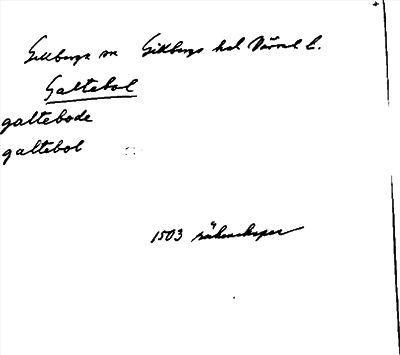 Gillberga sn Gillbergs hd Värml l.
Galtebol
galtebode
galtebol
1503 räkenskaper